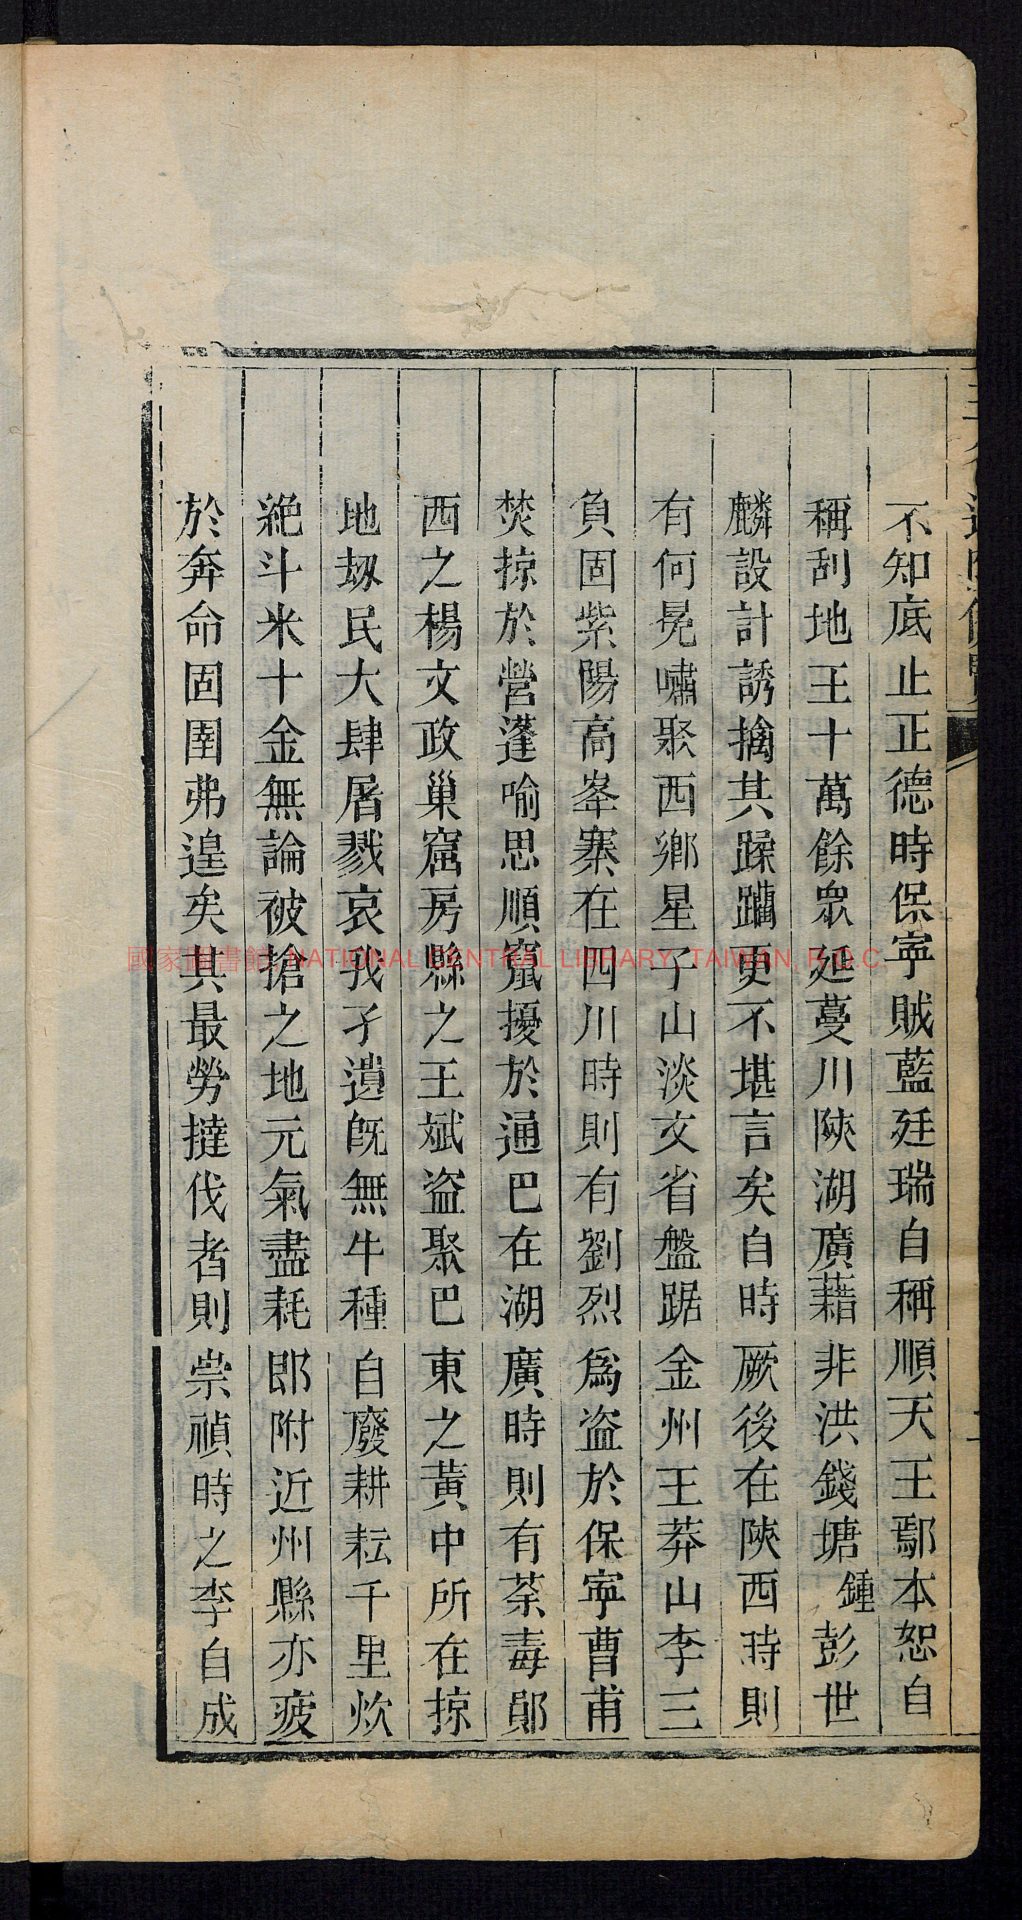 不知底止正德時保寧賊藍廷瑞自稱順天王鄢本恕自
稱刮地王十萬餘眾延蔓川陝湖廣藉非洪錢塘鍾彭世
麟設計誘擒其蹂躪更不堪言矣自時厥後在陝西時則
有何冕嘯聚西鄉星子山淡文省盤踞金州王莽山李三
負固紫陽高峯寨在四川時則有劉烈為盜於保寧曹甫
焚掠於營蓬喻思順竄擾於通巴在湖廣時則有荼毒鄖
西之楊文政巢窟房縣之王斌盜聚巴東之黃中所在掠
地刼民大肆屠戮哀我孑遺旣無牛種自廢耕耘千里炊
絕斗米十金無論被搶之地元氣盡耗即附近州縣亦疲
於奔命固圉弗遑矣其最勞撻伐者則崇禎時之李自成
國家圖書館, NATIONAL CENTRAL LIBRARY, TAIWAN, R.O.C